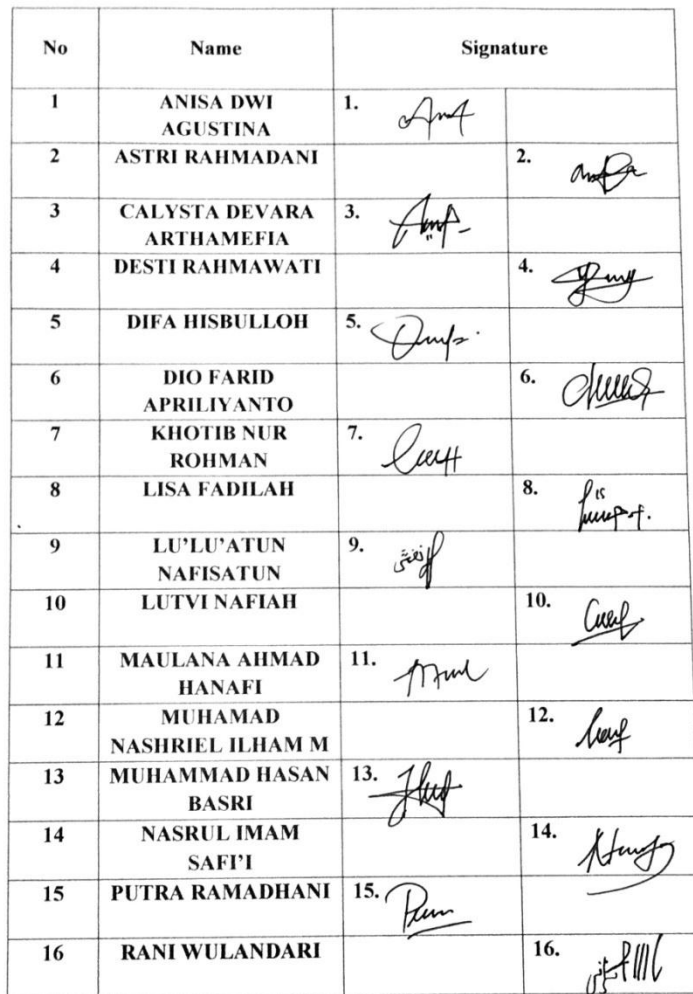 No Name Signature
1 ANISA DWI 1.
AGUSTINA
2 ASTRI RAHMADANI 2.
3 CALYSTA DEVARA 3.
ARTHAMEFIA
4 DESTI RAHMAWATI 4.
5 DIFA HISBULLOH 5.
6 DIO FARID 6.
APRILIYANTO
7 KHOTIB NUR 7.
ROHMAN
8 LISA FADILAH 8.
9 LU’LU’ATUN 9.
NAFISATUN
10 LUTVI NAFIAH 10.
11 MAULANA AHMAD 11.
HANAFI
12 MUHAMAD 12.
NASHRIEL ILHAM M
13 MUHAMMAD HASAN 13.
BASRI
14 NASRUL IMAM 14.
SAFI’I
15 PUTRA RAMADHANI 15.
16 RANI WULANDARI 16.